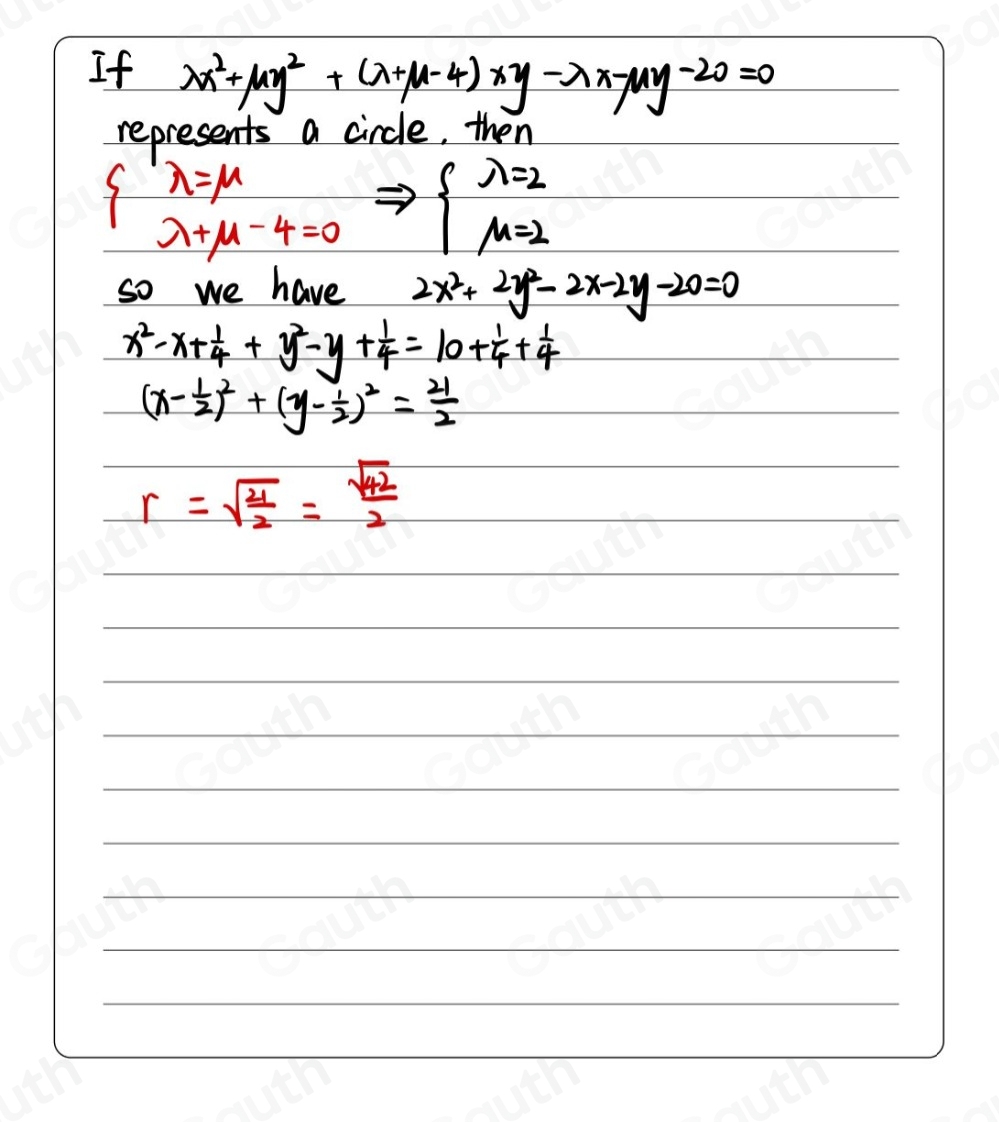 If λx²+μy² + (λ+μ-4)xy -λx-μy-20=0
represents a circle, then
{ λ=μ ⇒ { λ=2
λ+μ-4=0 μ=2
so we have 2x²+ 2y²- 2x-2y-20=0
x²-x+1/4 + y²-y+1/4 = 10+1/4+1/4
(x-1/2)² + (y-1/2)² = 21/2
r = √(21/2) = √42/2
Gauth